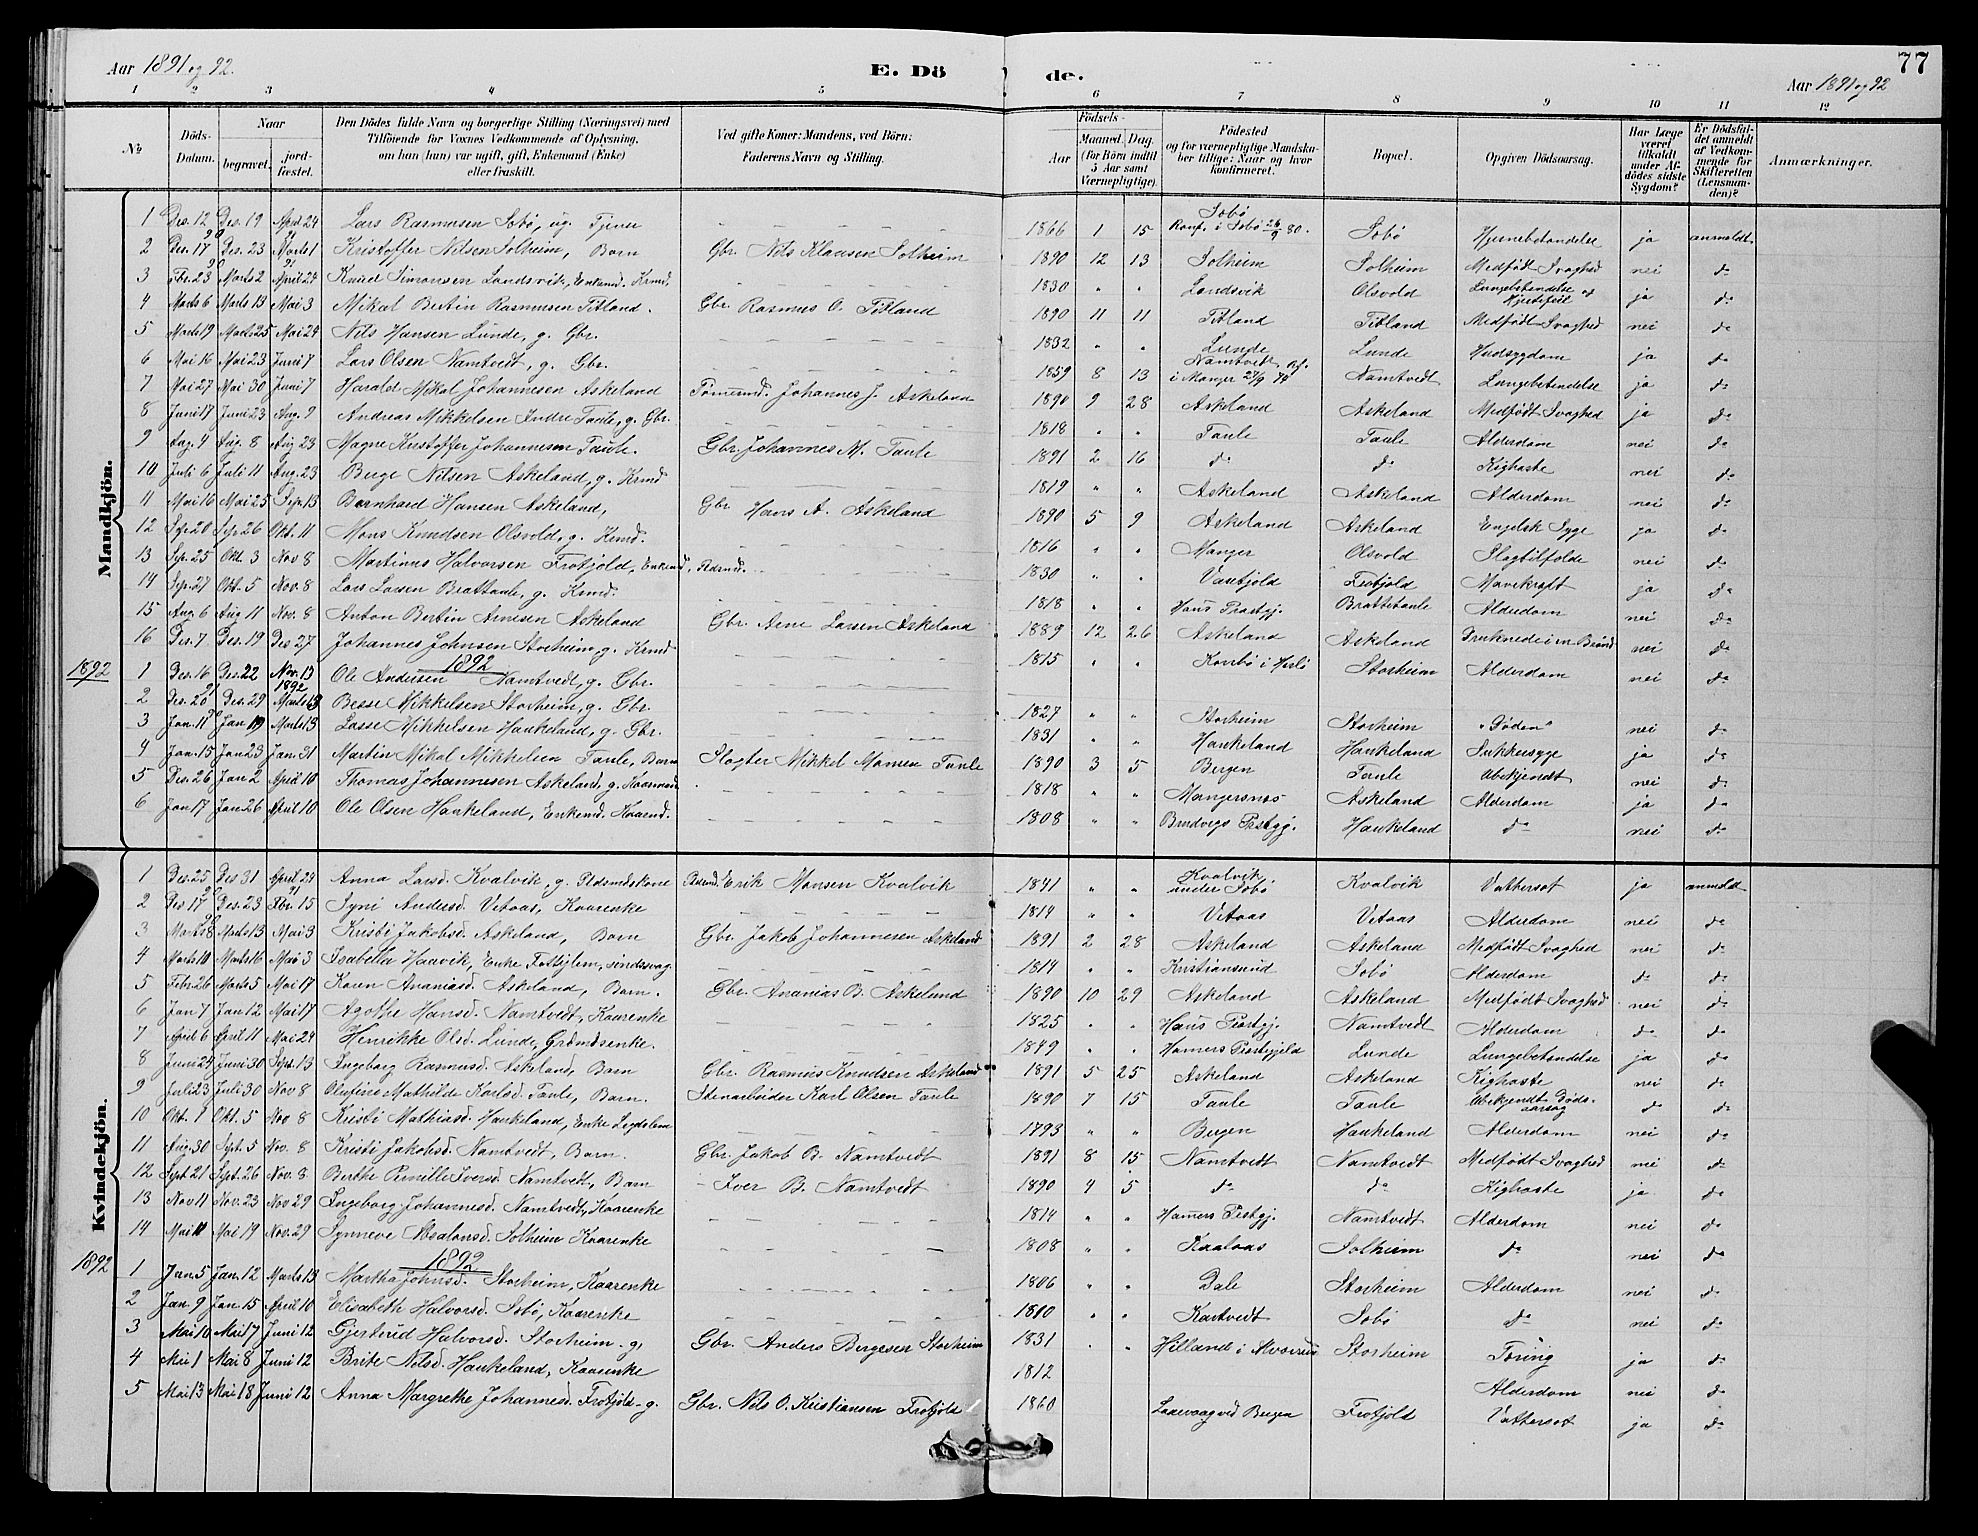 Aar 1891 og 92. E. Döde. Aar 1891 og 92 77
1 2 3 4 5 6 7 8 9 10 11 12
No Döds-Datum. Naar begravet. jordfæstet. Den Dödes fulde Navn og borgerlige Stilling (Næringsvei) med Tilföiende for Voxnes Vedkommende af Oplysning, om han (hun) var ugift, gift, Enkemand (Enke) eller fraskilt. Ved gifte Koner: Mandens, ved Börn: Faderens Navn og Stilling. Födsels- Aar Maaned. Dag. (for Börn indtil 5 Aar samt Værnepligtige). Födested og for værnepligtige Mandskaber tillige: Naar og hvor konfirmeret. Bopæl. Opgiven Dödsaarsag. Har Læge været tilkaldt under Afdödes sidste Sygdom? Er Dödsfaldet anmeldt af Vedkommende for Skifteretten (Lensmanden)? Anmærkninger.
Mandkjön.
1 Des. 12 90 Des. 19 April 24 91 Lars Rasmusen Sobö, ug. Tjener 1866 1 15 Sobö Konf. i Sobö 26/9 80. Sobö Hjernebetendelse ja anmeldt
2 Des. 17 90 Des. 23 Marts 1 91 Kristoffer Nilsen Solheim, Barn Gbr. Nils Klausen Solheim 1890 12 13 Solheim Solheim Medfödt Svaghed nei do
3 Fbr. 23 Marts 2 April 24 Knud Simonsen Landsvik, Enkemd. Krmd. 1830 " " Landsvik Olsvold Lungebetendelse og Hjertefeil ja do
4 Marts 6 Marts 13 Mai 3 Mikal Bertin Rasmusen Titland. Gbr. Rasmus O. Titland 1890 11 11 Titland Titland Medfödt Svaghed nei do
5 Marts 19 Marts 25 Mai 24 Nils Hansen Lunde, g. Gbr. 1832 " " Lunde Lunde Hudsygdom ja do
6 Mai 16 Mai 23 Juni 7 Lars Olsen Namtvedt, g. Gbr. 1859 8 13 Namtvedt, Kf. i Manger 27/9 74 Namtvedt Lungebetendelse ja do
7 Mai 27 Mai 30 Juni 7 Harald Mikal Johannesen Askeland Tömmmd. Johannes J. Askeland 1890 9 28 Askeland Askeland Medfödt Svaghed ja do
8 Juni 17 Juni 23 Aug. 9 Andreas Mikkelsen Indre Taule, g. Gbr. 1818 " " Taule Taule Alderdom nei do
9 Aug. 4 Aug. 8 Aug 23 Magne Kristoffer Johannesen Taule. Gbr. Johannes M. Taule 1891 2 16 do do Kighoste nei do
10 Juli 6 Juli 11 Aug. 23 Berge Nilsen Askeland, g. Krmd 1819 " " Askeland Askeland Alderdom nei do
11 Mai 16 Mai 25 Sep. 13 Bernhard Hansen Askeland, Gbr Hans A. Askeland 1890 5 9 Askeland Askeland Engelsk Syge ja do
12 Sep. 20 Sep 26 Okt. 11 Mons Knudsen Olsvold, g. Krmd. 1816 " " Manger Olsvold Slagtilfælde nei do
13 Sep. 25 Okt. 3 Nov 8 Martinus Halvorsen Frotjold, Enkemd, Pldsmd. 1830 " " Frotjold Mavekræft ja do
14 Sep. 27 Okt. 5 Nov. 8 Lars Larsen Brattaule, g. Krmd. 1818 " " Haus Præstgj. Brattetaule Alderdom nei do
15 Aug. 6 Aug 11 Nov. 8 Anton Bertin Arnesen Askeland Gbr. Arne Larsen Askeland 1889 12 26 Askeland Askeland Druknede i en Brönd nei do
16 Des. 7 Des. 19 Des 27 Johannes Johnsen Storheim, g. Krmd 1815 " " i Herlö Storheim Alderdom nei do
1892
1892
1 Des. 16 Des. 22 Nov. 13 1892 Ole Andersen Namtvedt, g. Gbr.
2 Des. 20 91 Des. 29 Marts 13 Besse Mikkelsen Storheim, g. Gbr. 1827 " " Storheim Storheim "Döden" nei do
3 Jan. 11 Jan 19 Marts 13 Lasse Mikkelsen Haukeland, g. Gbr. 1831 " " Haukeland Haukeland Sukkersyge ja do
4 Jan. 15 Jan 23 Jan. 31 Martin Mikal Mikkelsen Taule, Barn Slagter Mikkel Monsen Taule 1890 3 5 Bergen Taule Ubekjendt nei do
5 Des. 26 Jan 2 April 10 Thomas Johannesen Askeland, g. Kaarmand. 1818 " " Mangersnes Askeland Alderdom ja do
6 Jan 17 Jan. 26 April 10 Ole Olsen Haukeland, Enkemd. Kaarmd. 1808 " " Bredvigs Prestgj. Haukeland do nei do
Kvindekjön.
1 Des. 25 90 Des 31 April 24 91 Anna Larsd. Kvalvik, g. Pldsmdskone Pldsmd. Erik Monsen Kvalvik 1841 " " Kvalvik under Sobö Kvalvik Vattersot ja anmeldt
2 Des 17 90 Des. 23 Fbr. 15 Syni Andersd. Vetaas, Kaarenke 1814 " " Vetaas Vetaas Alderdom nei do
3 Marts 8 Marts 13 Mai 3 Kristi Jakobsd. Askeland, Barn Gbr. Jakob Johannesen Askeland 1891 2 28 Askeland Askeland Medfödt Svaghed nei do
4 Marts 10 Marts 16 Mai 3 Isabella Haavik, Enke Fattiglem, sindssvag. 1814 " " Kristiansund Sobö Alderdom do do
5 Febr 26 Marts 5 Mai 17 Karen Ananiasd. Askeland, Barn. Gbr. Ananias B. Askeland 1890 10 29 Askeland Askeland Medfödt Svaghed nei do
6 Jan 7 Jan 12 Mai 17 Agothe Hansd. Namtvedt, Kaarenke 1825 " " Haus Prestgj. Namtvedt Alderdom do do
7 April 6 April 11 Mai 24 Henrikke Olsd. Lunde, Grdmdsenke. 1849 " " Hamers Prestegjeld Lunde Lungebetendelse ja do
8 Juni 24 Juni 30 Sept. 13 Ingeborg Rasmusd. Askeland, Barn Gbr. Rasmus Knudsen Askeland 1891 5 25 Askeland Askeland Kighoste nei do
9 Juli 23 Juli 30 Nov 8 Mathilde Karlsd. Taule, Barn. Stenarbeider Karl Olsen Taule 1890 7 15 Taule Taule Ubekjendt Dödsaarsag do do
10 Okt. 1 Okt. 5 Nov 8 Kristi Mathiasd. Haukeland, Enke Legdslem 1793 " " Bergen Haukeland Alderdom nei do
11 Aug. 30 Sept. 5 Nov. 8 Kristi Jakobsd. Namtvedt, Barn. Gbr. Jakob B. Namtvedt 1891 8 15 Namtvedt Namtvedt Medfödt Svaghed nei do
12 Sept 21 Sept. 26 Nov. 8 Berthe Pernille Iversd. Namtvedt, Barn - Iver B. Namtvedt 1890 4 5 do do Kighoste ja do
13 Nov 11 Nov. 23 Nov 29 Ingeborg Johannesd. Namtvedt, Kaarenke 1814 " " Hamers Prestgj. Namtvedt Alderdom nei do
14 Mai 11 Mai 19 Nov. 29 Synneve Absalonsd. Solheim Kaarenke 1808 " " Kaalaas Solheim do nei do
1892
1892
1 Jan. 5 Jan. 12 Marts 13 Martha Johnsd. Storheim, Kaarenke 1806 " " Dale Storheim Alderdom nei do
2 Jan. 9 Jan. 15 April 10 Elisabeth Halvorsd. Sobö, Kaarenke 1810 " " Kartvedt Sobö do nei do
3 Mai 10 Mai 17 Juni 12 Gjertrud Halvorsd. Storheim g. Gbr. Anders Bergesen Storheim 1831 " " Hilland i Alversund Storheim Tæring ja do
4 Mai 1 Mai 8 Juni 12 Brite Nilsd. Haukeland, Kaarenke 1812 Alderdom nei do
5 Mai 13 Mai 18 Juni 12 Anna Margrethe Johannesd. Frotjold g. Gbr. Nils O. Kristiansen Frotjold 1860 Laxevaag ved Bergen Frotjold Vattersot ja do